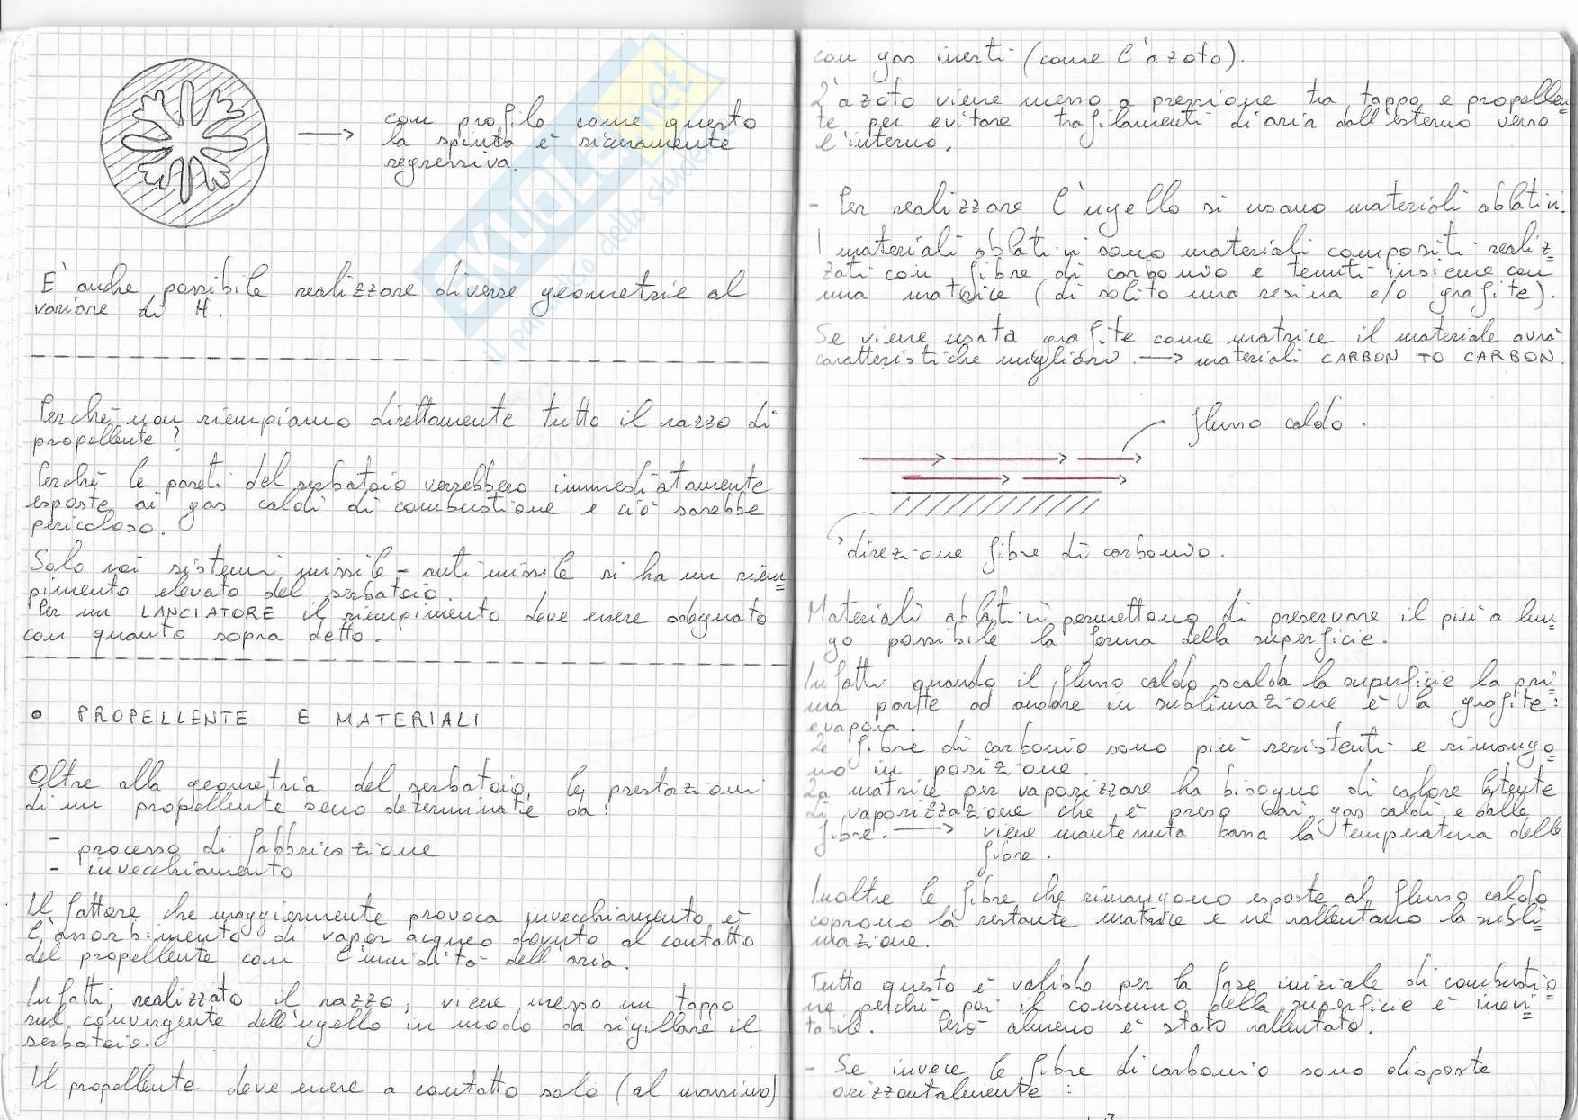 con profilo come questo
la spinta è sicuramente
regressiva.
È anche possibile realizzare diverse geometrie al
variare di H.
Perchè non riempiamo direttamente tutto il razzo di
propellente?
Perchè le pareti del serbatoio verrebbero immediatamente
esposte ai gas caldi di combustione e ciò sarebbe
pericoloso.
Solo nei sistemi missile-antimissile si ha un riem=
pimento elevato del serbatoio.
Per un LANCIATORE il riempimento deve essere adeguato
con quanto sopra detto.
• PROPELLENTE E MATERIALI
Oltre alla geometria del serbatoio, le prestazioni
di un propellente sono determinate da:
- processo di fabbricazione
- invecchiamento
Il fattore che maggiormente provoca invecchiamento è
l'assorbimento di vapor acqueo dovuto al contatto
del propellente con l'umidità dell'aria.
Infatti, realizzato il razzo, viene messo un tappo
sul convergente dell'ugello in modo da sigillare il
serbatoio.
Il propellente deve essere a contatto solo (al massimo)
con gas inerti (come l'azoto).
L'azoto viene messo a pressione tra tappo e propellen=
te per evitare trafilamenti di aria dall'esterno verso
l'interno.
- Per realizzare l'ugello si usano materiali ablativi.
I materiali ablativi sono materiali compositi realiz=
zati con fibre di carbonio e tenuti insieme con
una matrice (di solito una resina e/o grafite).
Se viene usata grafite come matrice il materiale avrà
caratteristiche migliori. → materiali CARBON TO CARBON.
flusso caldo.
direzione fibre di carbonio.
Materiali ablativi permettono di preservare il più a lun=
go possibile la forma della superficie.
Infatti quando il flusso caldo scalda la superficie la pri=
ma parte ad andare in sublimazione è la grafite:
evapora.
Le fibre di carbonio sono più resistenti e rimango
no in posizione.
La matrice per vaporizzare ha bisogno di calore latente
di vaporizzazione che è preso dai gas caldi e dalle
fibre. → viene mantenuta bassa la temperatura delle
fibre.
Inoltre le fibre che rimangono esposte al flusso caldo
coprono la restante matrice e ne rallentano la subli=
mazione.
Tutto questo è valido per la fase iniziale di combustio
ne perchè poi il consumo della superficie è inevi=
tabile. Però almeno è stato rallentato.
- Se invece le fibre di carbonio sono disposte
orizzontalmente: